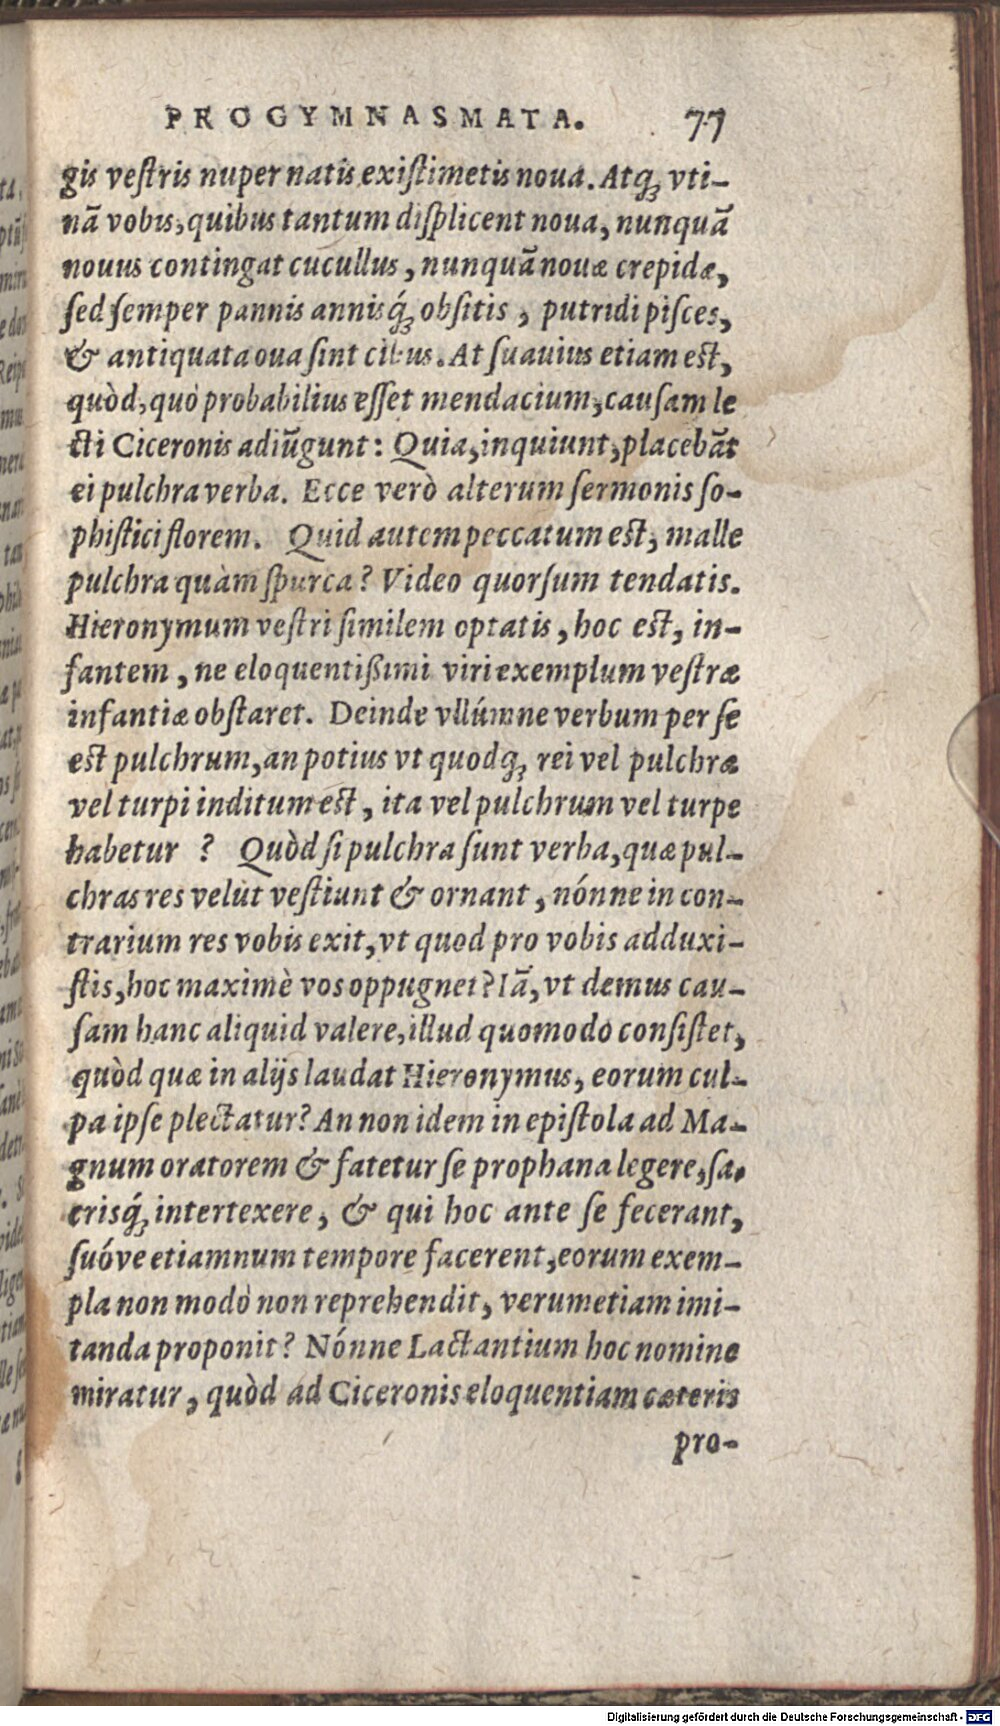 PROGYMNASMATA. 77
gis veſtris nuper natis exiſtimetis noua. Atq́; vti-
nā vobis, quibus tantum diſplicent noua, nunquā
nouus contingat cucullus, nunquā nouæ crepidæ,
ſed ſemper pannis annisq́; obſitis, putridi piſces,
& antiquata oua ſint cibus. At ſuauius etiam est,
quòd, quò probabilius eſſet mendacium, cauſam le
cti Ciceronis adiūgunt: Quia, inquiunt, placebāt
ei pulchra verba. Ecce verò alterum ſermonis ſo-
phiſtici florem. Quid autem peccatum est, malle
pulchra quàm ſpurca? Video quorſum tendatis.
Hieronymum veſtri ſimilem optatis, hoc est, in-
fantem, ne eloquentiſſimi viri exemplum veſtræ
infantiæ obſtaret. Deinde vllúmne verbum per ſe
est pulchrum, an potius vt quodq; rei vel pulchræ
vel turpi inditum est, ita vel pulchrum vel turpe
habetur? Quòd ſi pulchra ſunt verba, quæ pul-
chras res velut veſtiunt & ornant, nónne in con-
trarium res vobis exit, vt quod pro vobis adduxi-
ſtis, hoc maximè vos oppugnet? Iā, vt demus cau-
ſam hanc aliquid valere, illud quomodo conſiſtet,
quòd quæ in alijs laudat Hieronymus, eorum cul-
pa ipſe plectatur? An non idem in epiſtola ad Ma-
gnum oratorem & fatetur ſe prophana legere, ſa-
crisq́; intertexere, & qui hoc ante ſe fecerant,
ſuóve etiamnum tempore facerent, eorum exem-
pla non modò non reprehendit, verumetiam imi-
tanda proponit? Nónne Lactantium hoc nomine
miratur, quòd ad Ciceronis eloquentiam cæteris
pro-
Digitalisierung gefördert durch die Deutsche Forschungsgemeinschaft - DFG